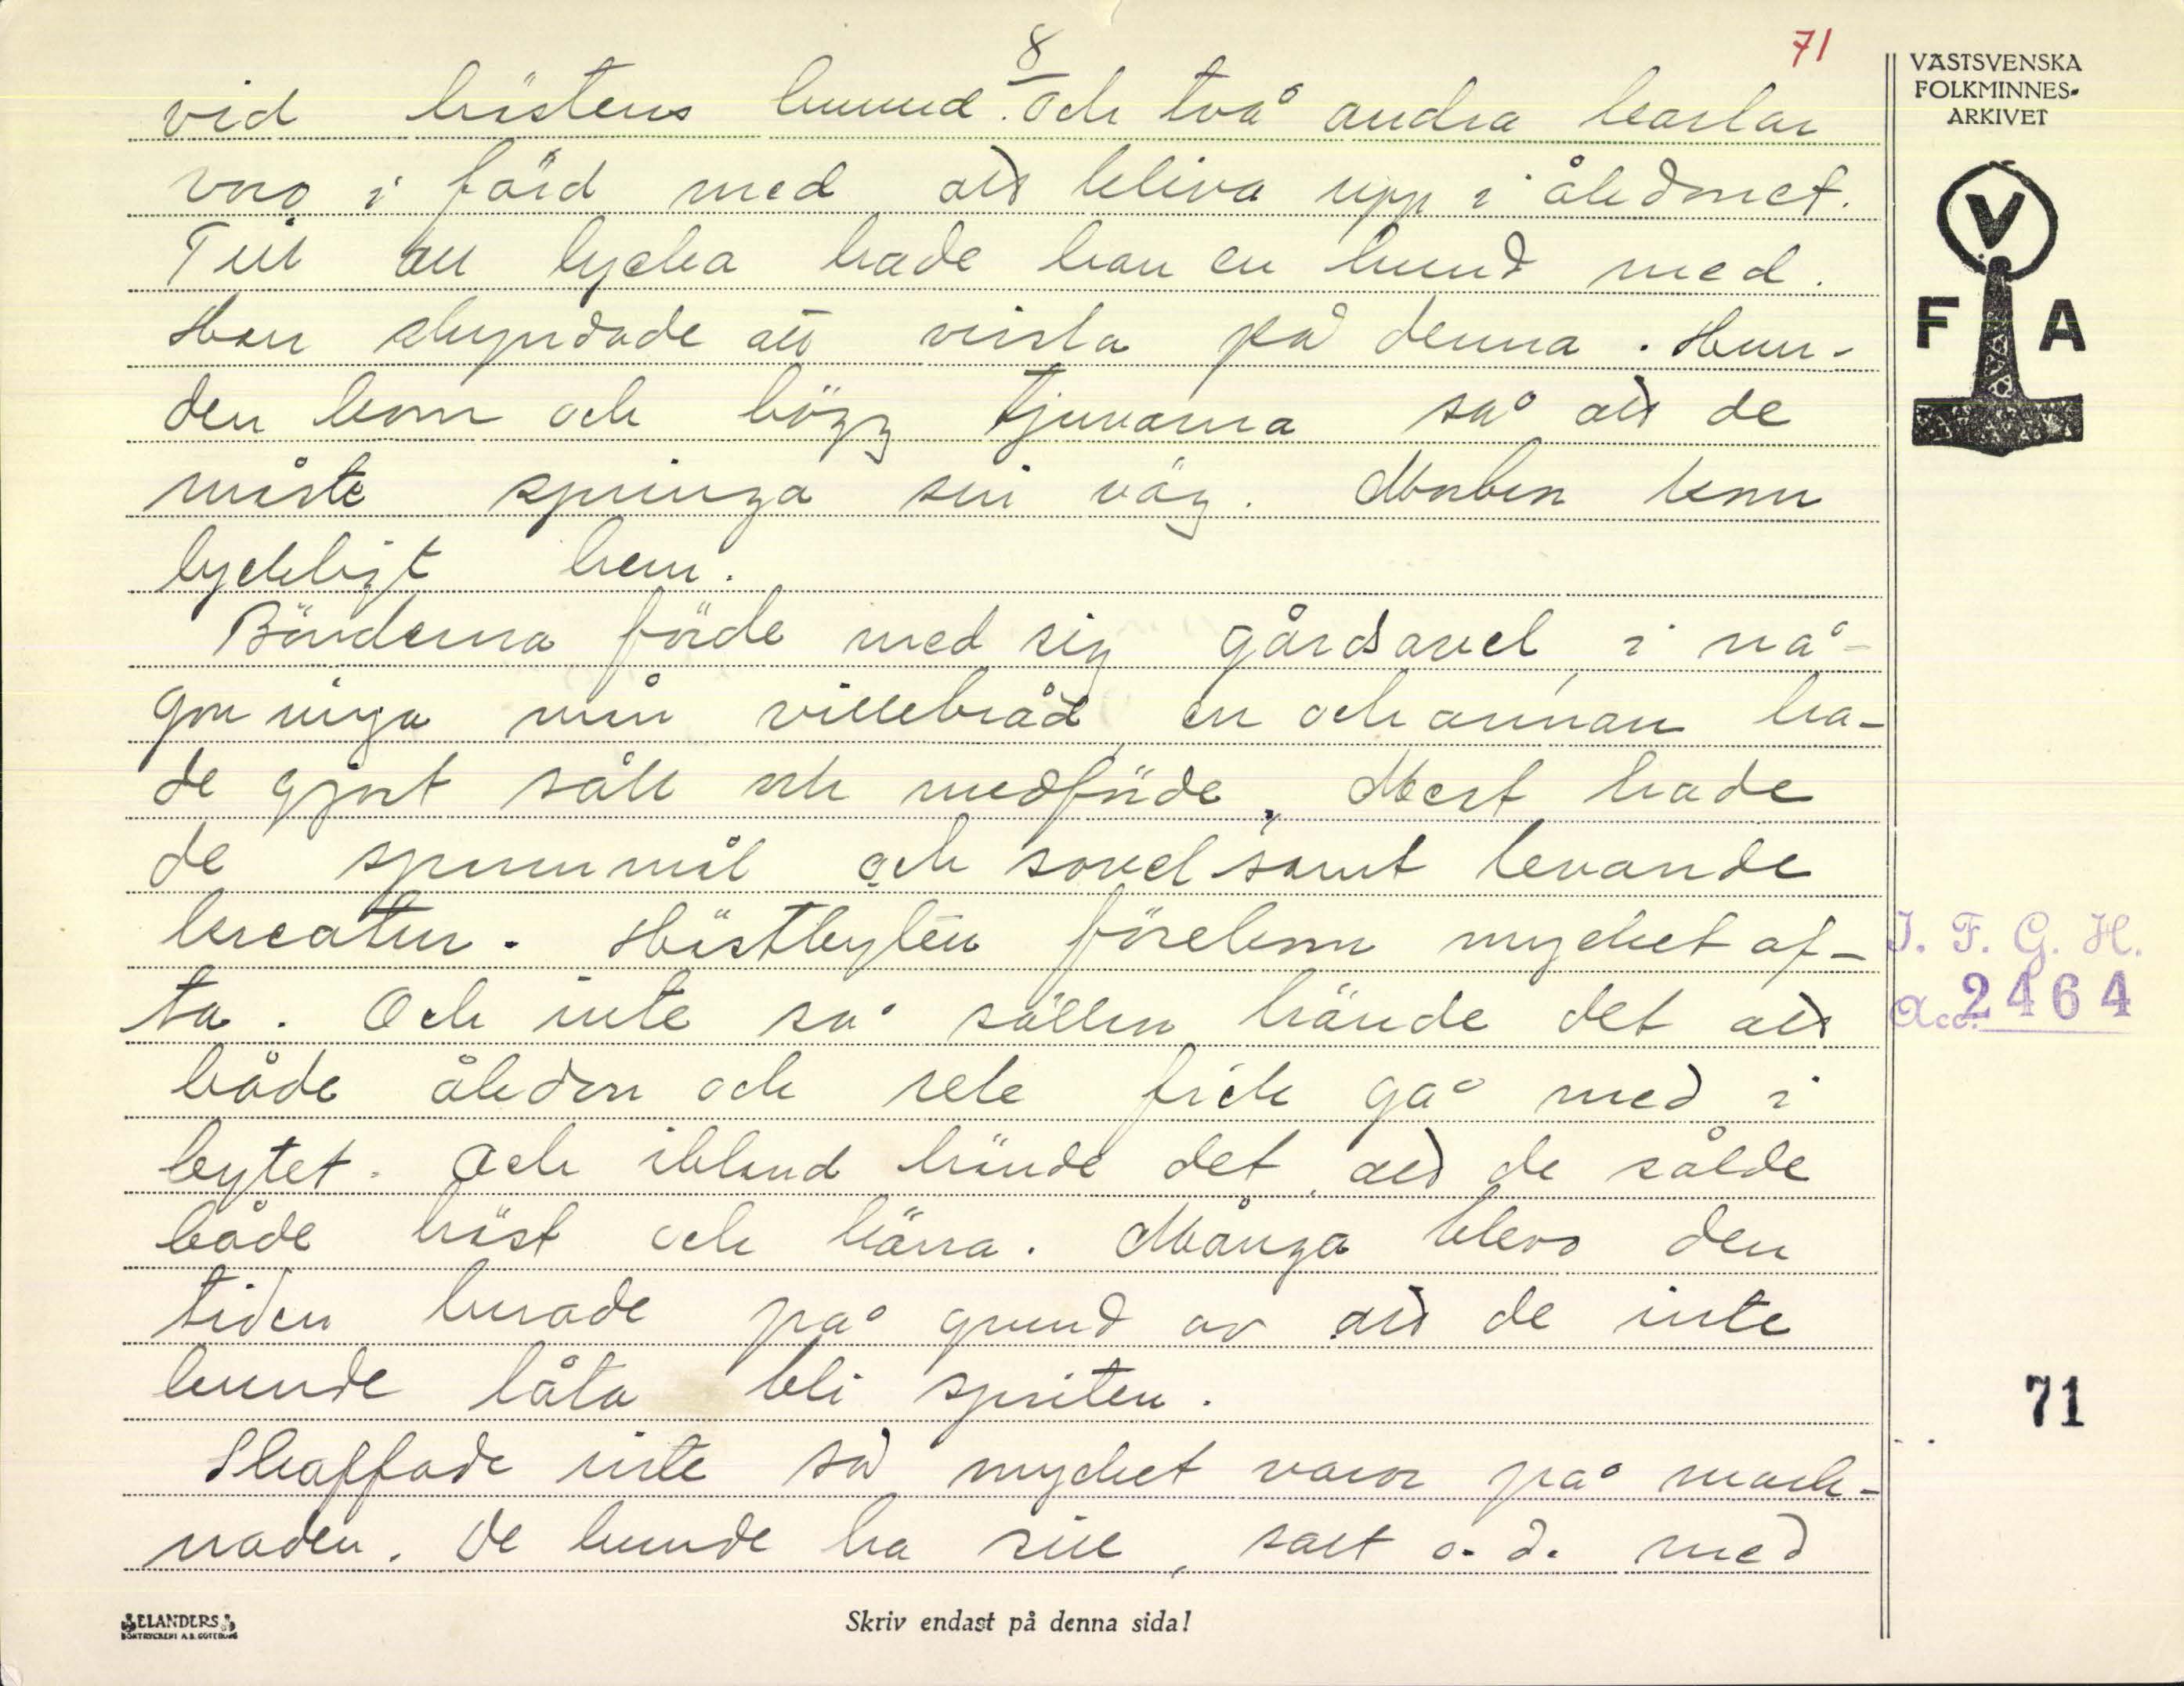 8
71
vid hästens huvud. Och två andra karlar
voro i färd med att kliva upp i åkdonet.
Till all lycka hade han en hund med.
Han skyndade att vissla på denna. Hun-
den kom och högg tjuvarna så att de
måste springa sin väg. Morbror kom
lyckligt hem.
Bönderna förde med sig gårdsavel, i nå-
gon ringa mån villebråd, en och annan ha-
de gjort såll och medförde. Mest hade
de spannmål och sovel samt levande
kreatur. Hästbyten förekom mycket of-
ta. Och inte så sällan hände det att
både åkdon och sele fick gå med i
bytet. Och ibland hände det att de sålde
både häst och kärra. Många blevo den
tiden lurade på grund av att de inte
kunde låta bli spriten.
Skaffade inte så mycket varor på mark-
naden. De kunde ha sill, salt o. d. med
VÄSTSVENSKA
FOLKMINNES-
ARKIVET
V
F A
I. F. G. H.
Acc. 2464
71
ELANDERS
BOKTRYCKERI A.B. GÖTEBORG
Skriv endast på denna sida!